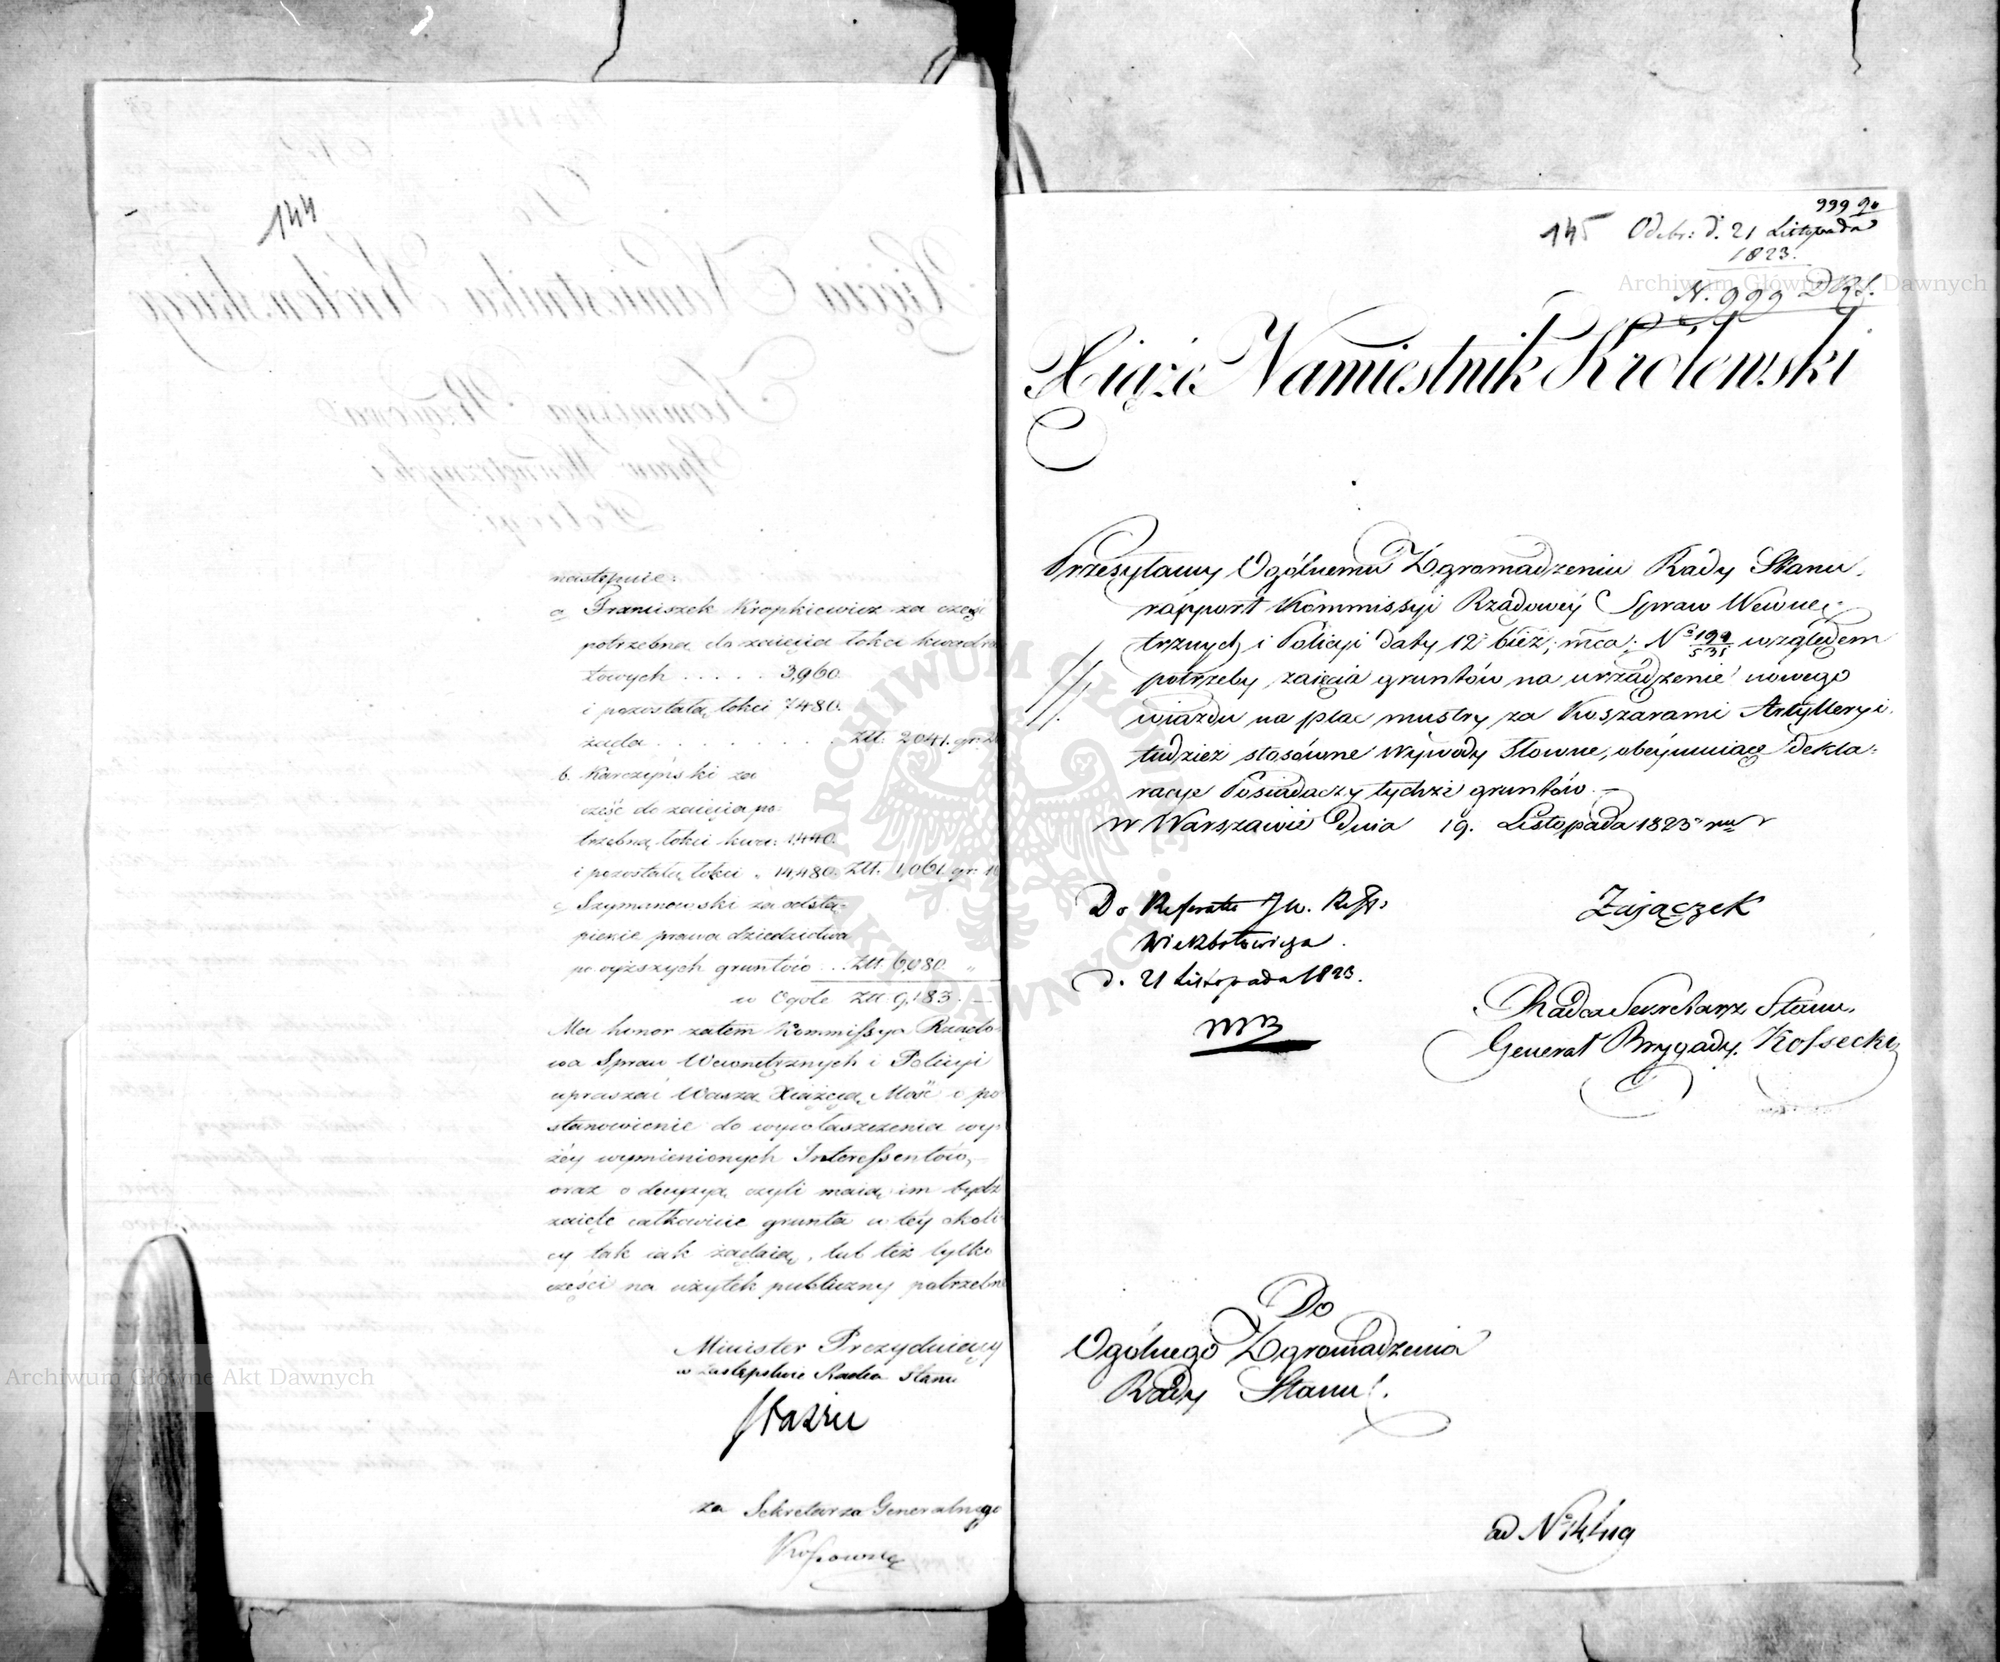 144
następnie:
a Franciszek Kropkiewicz za część
potrzebną do zaięcia łokci kwadra
towych . . . . . 3,960.
i pozostałą łokci 7480.
żąda . . . . . . . . . Złł. 2041. gr:
b. Karczyński za
część do zaięcia po:
trzebną łokci kwa: 1,440.
i pozostałą łokci „ 14,480. Złł. 1,061 gr: 10
c Szymanowski za odstą:
pienie prawa dziedzictwa
powyższych gruntów . . Złł. 6,080. „
w Ogóle Złł. 9,183. —
Ma honor zatem Kommissya Rządo
wa Spraw Wewnętrznych i Policyi
upraszać Waszą Xiążęcą Mość o po
stanowienie do wywłaszczenia wy:
żey wymienionych Interessentów,
oraz o decyzyą czyli maią im bydź
zaięte całkowicie grunta w tey okoli
cy tak iak żądaią, lub też tylko
części na użytek publiczny potrzebne
Minister Prezyduiący
w Zastępstwie Radca Stanu
Staszic
za Sekretarza Generalnego
999 90
145 Odebr: d. 21 Listopada
1823.
N. 999 DRS.
Xiąże Namiestnik Królewski
Przesyłamy Ogólnemu Zgromadzeniu Rady Stanu
rapport Kommissyi Rządowey Spraw Wewnę:
trznych i Policyi daty 12 bież: mca: No 199/531 względem
potrzeby zaięcia gruntów na urządzenie nowego
wiazdu na plac mustry za Koszarami Artylleryi
tudzież stosówne Wywody Słowne, obeymuiące dekla:
racye Posiadaczy tychże gruntów. —
w Warszawie dnia 19. Listopada 1823 r
Do Referatu JW. Refr:
d. 21 Listopada 1823.
Zaiączek
Radca Sekretarz Stanu,
Generał Brygady. Kossecki
Do
Ogólnego Zgromadzenia
Rady Stanu.
ad No
Archiwum Główne Akt Dawnych
Archiwum Główne Akt Dawnych
ARCHIWUM GŁÓWNE AKT DAWNYCH